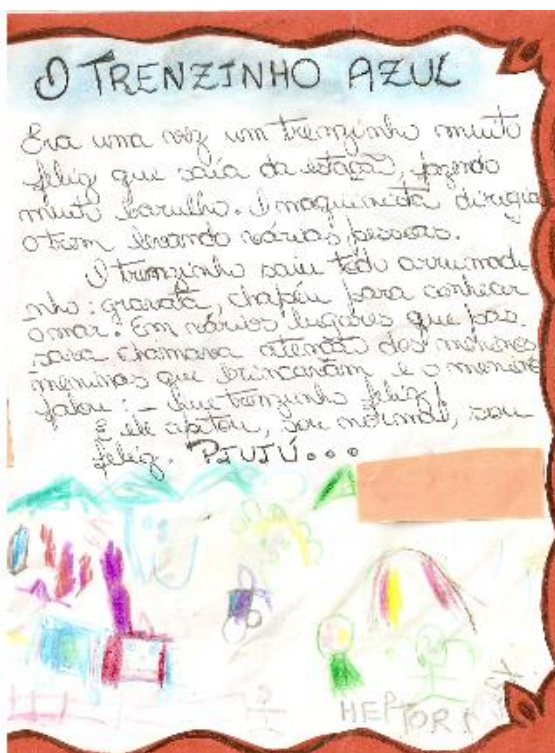 O TRENZINHO AZUL
Era uma vez um trenzinho muito
feliz que saía da estação, fazendo
muito barulho. O maquinista dirigia
o trem levando várias pessoas.
O trenzinho saiu todo arrumadi-
nho: gravata, chapéu para conhecer
o mar. Em vários lugares que pas-
sava chamava atenção dos meninos
meninas que brincavam e o menino
falou: Que trenzinho feliz!
E ele apitou, sou normal, sou
feliz. PIUIÚ...
HEPTOR